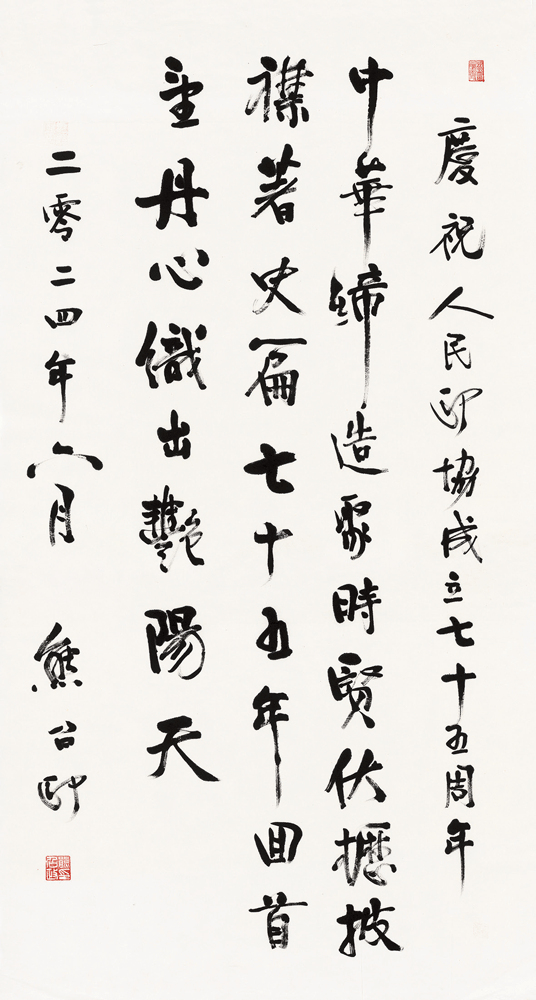 慶祝人民政協成立七十五周年
中華締造聚時賢伏櫪披
襟著史篇七十五年回首
望丹心織出艷陽天
二零二四年六月 熊召政